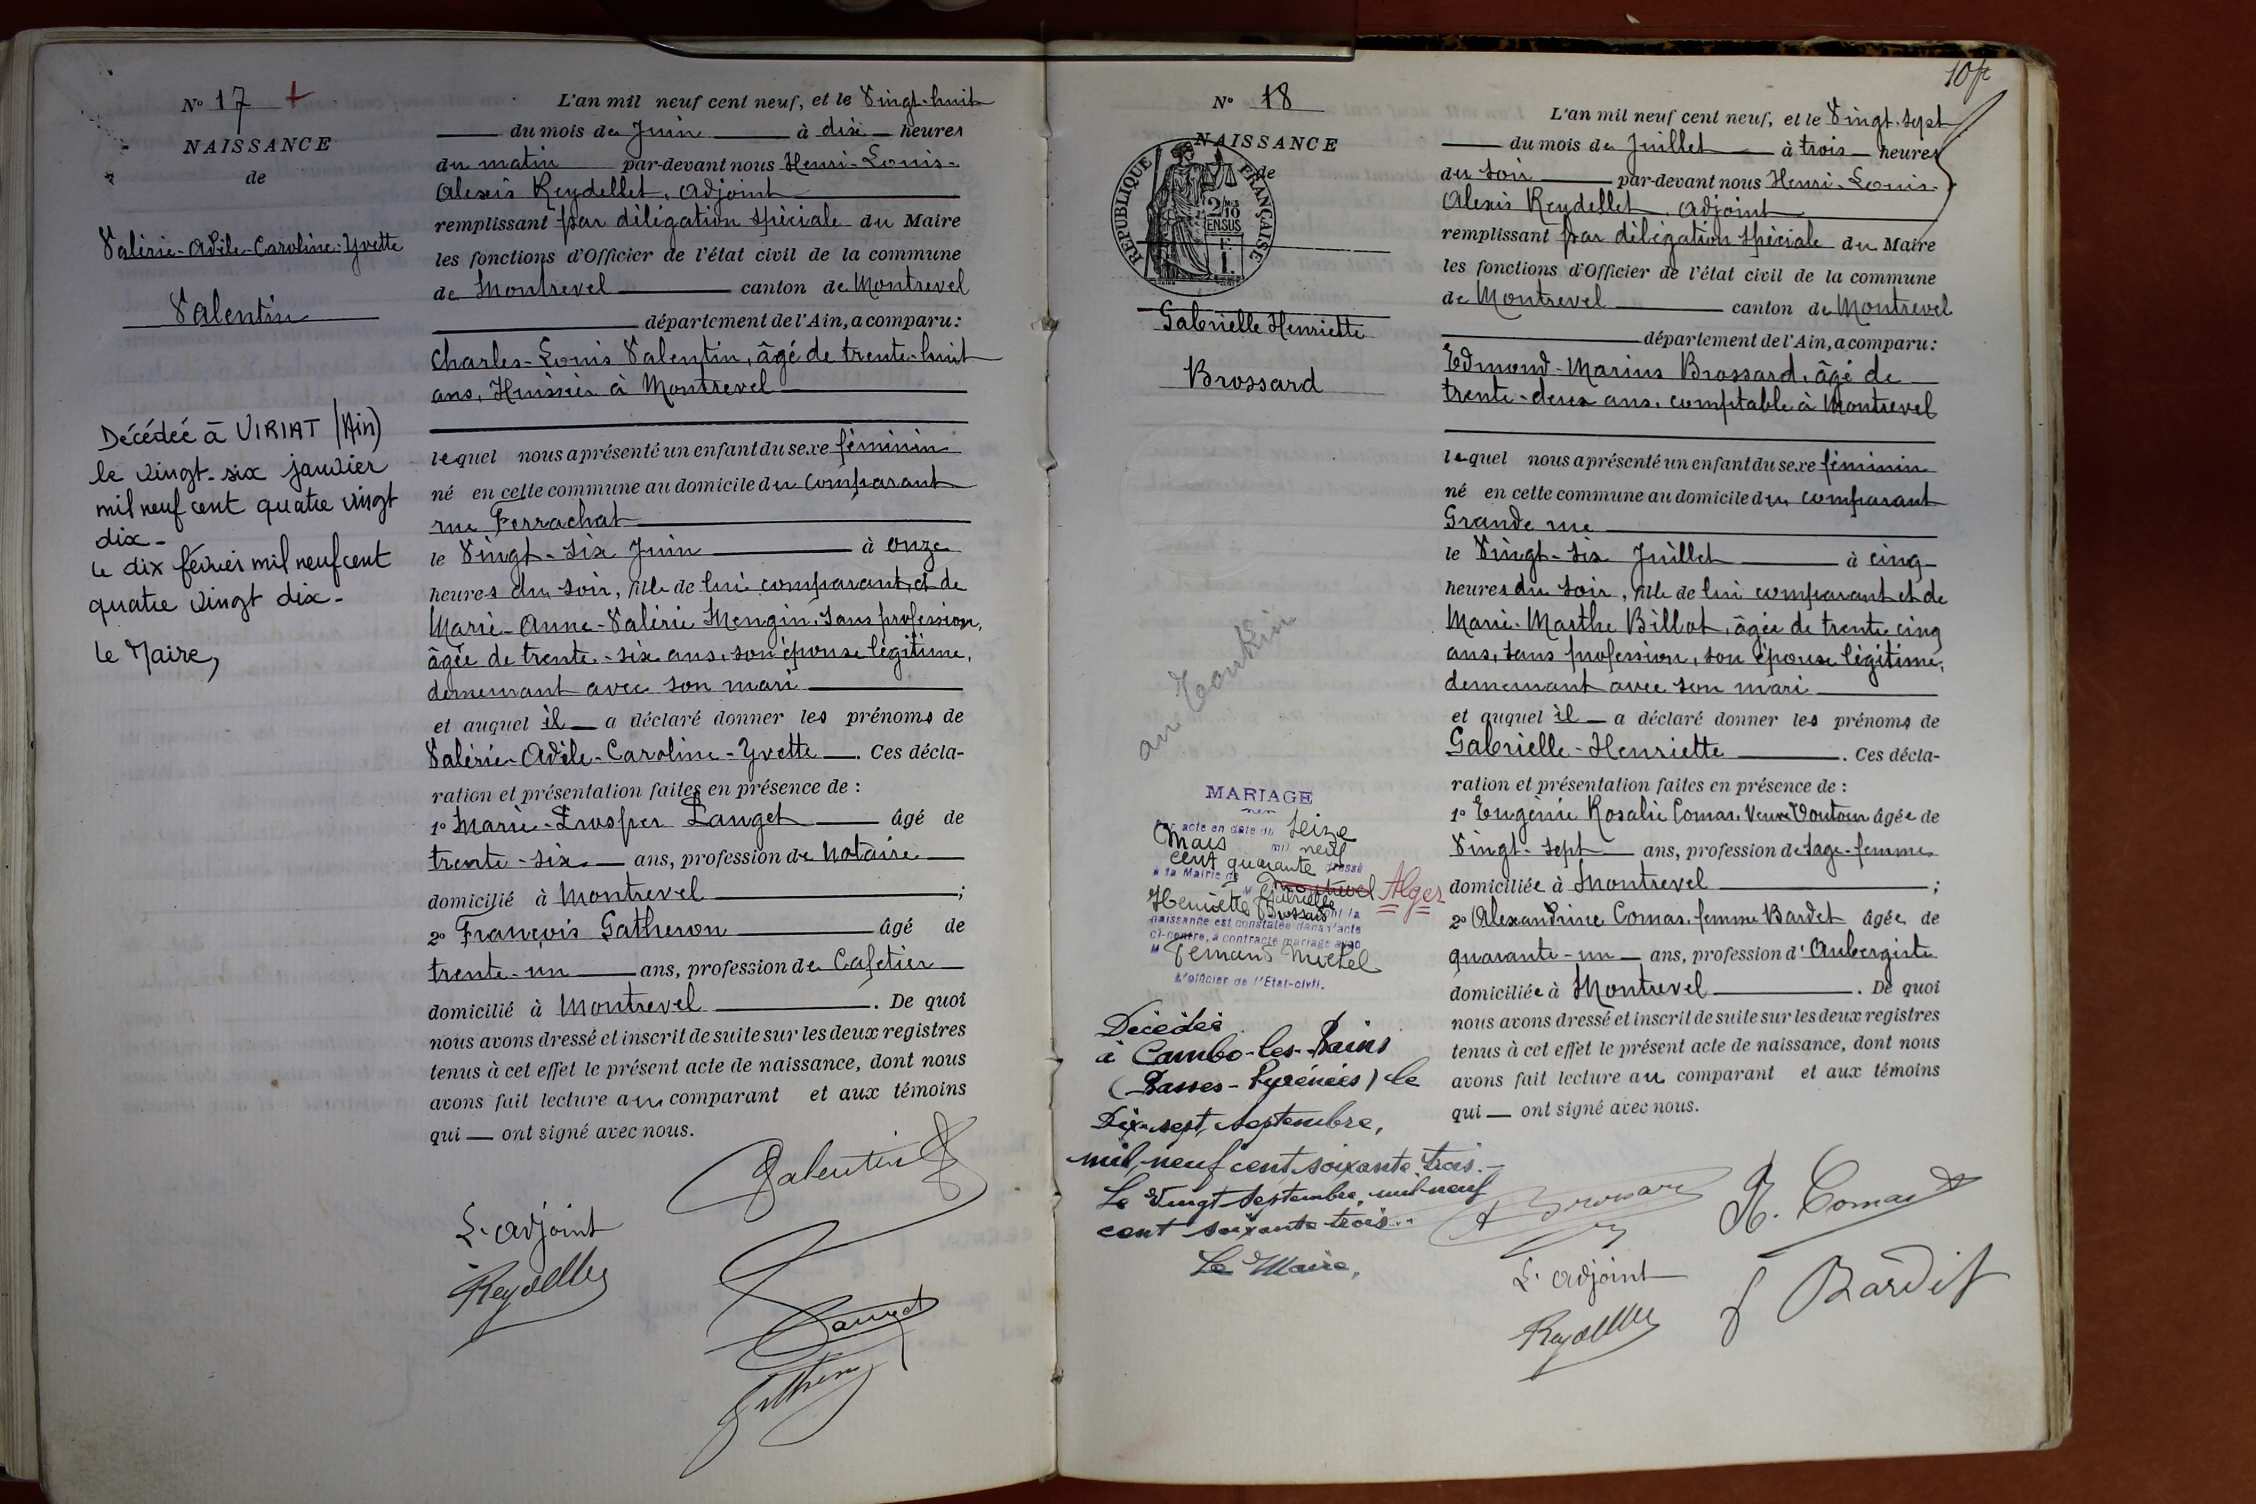 N° 17 +
NAISSANCE
de
Valérie-Adèle-Caroline-Yvette
Valentin
Décédée à VIRIAT (Ain)
le vingt-six janvier
mil neuf cent quatre vingt
dix-
Le dix février mil neuf cent
quatre vingt dix-
Le Maire,
L'an mil neuf cent neuf, et le Vingt-huit
du mois de Juin à dix heures
du matin par-devant nous Henri-Louis-
Alexis Reydellet, adjoint
remplissant par délégation spéciale du Maire
les fonctions d'Officier de l'état civil de la commune
de Montrevel canton de Montrevel
département de l'Ain, a comparu:
Charles-Louis Valentin, âgé de trente-huit
ans, Huissier à Montrevel
lequel nous a présenté un enfant du sexe féminin
né en cette commune au domicile du comparant
rue Ferrachat
le Vingt-six Juin à onze
heures du soir, fille de lui comparant, et de
Marie-Anne-Valérie Mengin, sans profession,
âgée de trente-six ans, son épouse légitime,
demeurant avec son mari
et auquel il a déclaré donner les prénoms de
Valérie-Adèle-Caroline-Yvette. Ces décla-
ration et présentation faites en présence de:
1° Marie-Prosper Pauget âgé de
trente-six ans, profession de Notaire
domicilié à Montrevel;
2° François Gatheron âgé de
trente-un ans, profession de Cafetier
domicilié à Montrevel. De quoi
nous avons dressé et inscrit de suite sur les deux registres
tenus à cet effet le présent acte de naissance, dont nous
avons fait lecture au comparant et aux témoins
qui ont signé avec nous.
Valentin
L'adjoint
Reydellet
Pauget
Gatheron
10
N° 18
NAISSANCE
de
RÉPUBLIQUE FRANÇAISE
2/10
EN SUS
Gabrielle Henriette
Brossard
au Tonkin
MARIAGE
Par acte en date du seize
Mars mil neuf
cent quarante dressé
à la Mairie de Montrevel Alger
M Gabrielle
Henriette Brossard dont la
naissance est constatée dans l'acte
ci-contre, a contracté mariage avec
M Fernand Michel
L'officier de l'Etat-civil.
Décédée
à Cambo-les-Bains
(Basses-Pyrénées) le
Dix-sept septembre,
mil neuf cent soixante trois.-
Le Vingt septembre, mil neuf
cent soixante trois..
Le Maire,
L'an mil neuf cent neuf, et le Vingt-sept
du mois de Juillet à trois heures
du soir par-devant nous Henri-Louis-
Alexis Reydellet, adjoint
remplissant par délégation spéciale du Maire
les fonctions d'Officier de l'état civil de la commune
de Montrevel canton de Montrevel
département de l'Ain, a comparu:
Edmond-Marius Brossard, âgé de
trente-deux ans, comptable à Montrevel
lequel nous a présenté un enfant du sexe féminin
né en cette commune au domicile du comparant
Grande rue
le Vingt-six Juillet à cinq
heures du soir, fille de lui comparant et de
Marie-Marthe Billot, âgée de trente cinq
ans, sans profession, son épouse légitime,
demeurant avec son mari
et auquel il a déclaré donner les prénoms de
Gabrielle-Henriette. Ces décla-
ration et présentation faites en présence de:
1° Eugénie Rosalie Comas Veuve âgée de
Vingt-sept ans, profession de sage-femme
domiciliée à Montrevel;
2° Alexandrine Comas, femme Bardet âgée de
quarante-un ans, profession d'Aubergiste
domiciliée à Montrevel. De quoi
nous avons dressé et inscrit de suite sur les deux registres
tenus à cet effet le présent acte de naissance, dont nous
avons fait lecture au comparant et aux témoins
qui ont signé avec nous.
Brossard
R. Comas
L'adjoint
Reydellet
Bardet